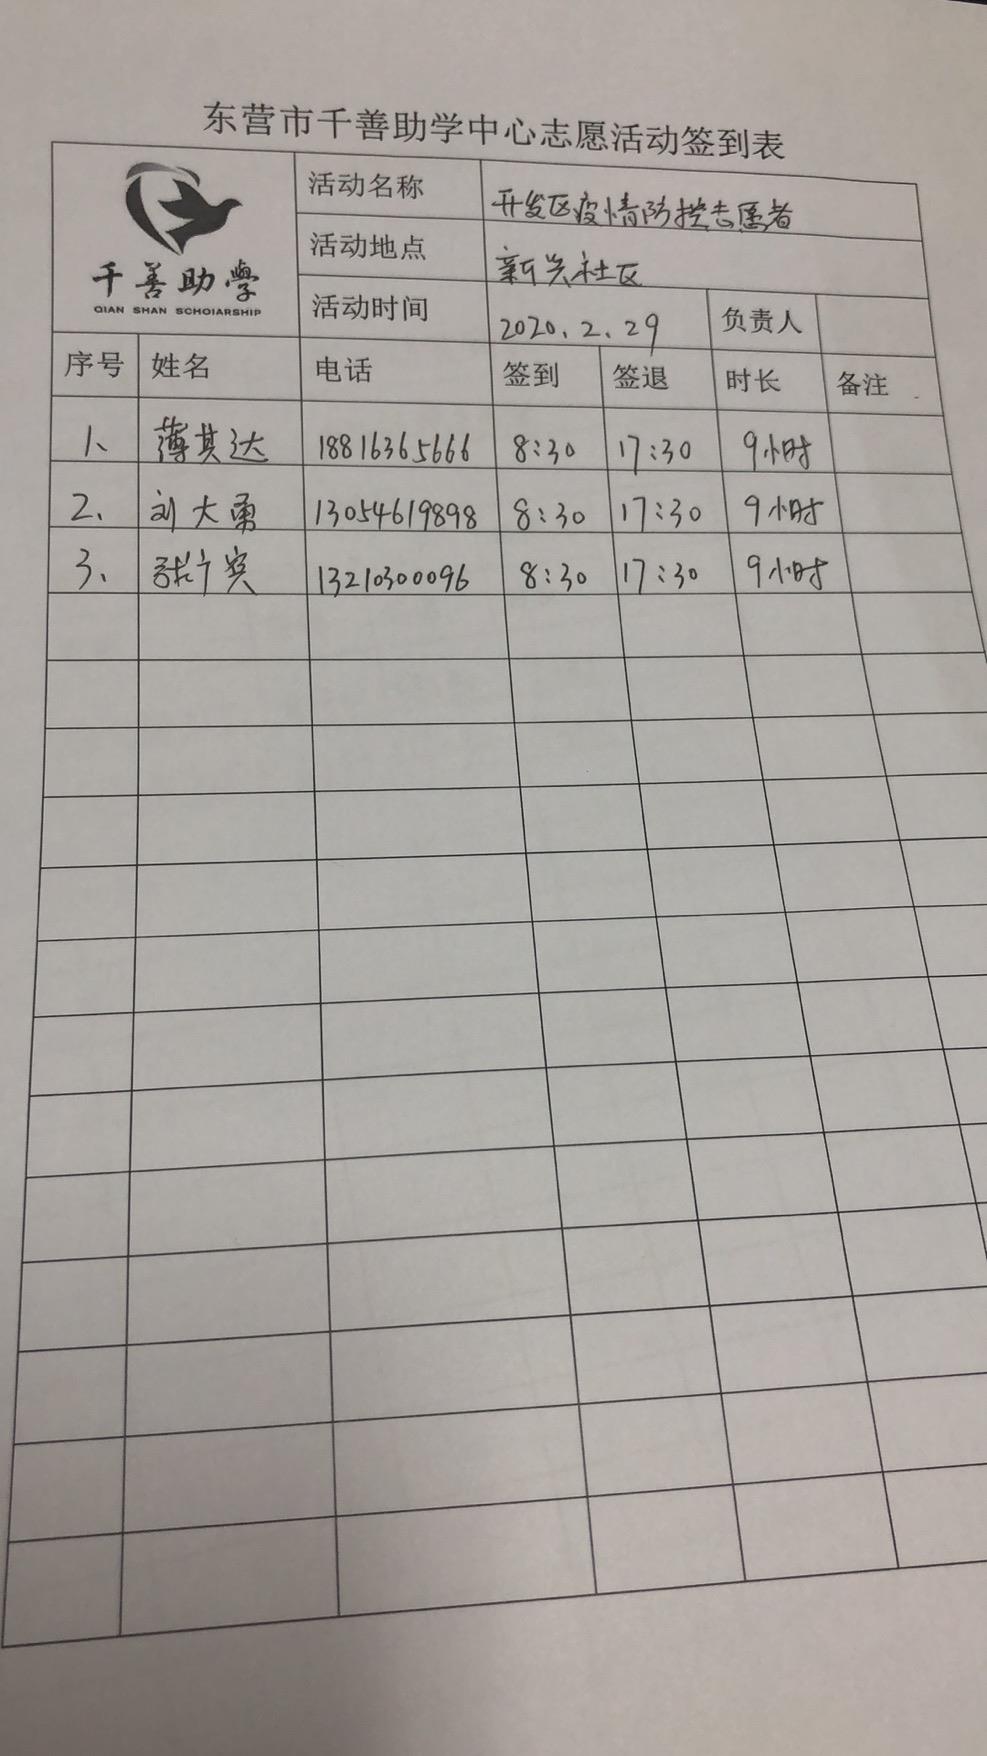 东营市千善助学中心志愿活动签到表
千善助學
QIAN SHAN SCHOIARSHIP
活动名称 开发区疫情防控志愿者
活动地点 新兴社区
活动时间 2020.2.29 负责人
序号 姓名 电话 签到 签退 时长 备注
1、 薄其达 18816365666 8:30 17:30 9小时
2、 刘大勇 13054619898 8:30 17:30 9小时
3、 张宁宾 13210300096 8:30 17:30 9小时